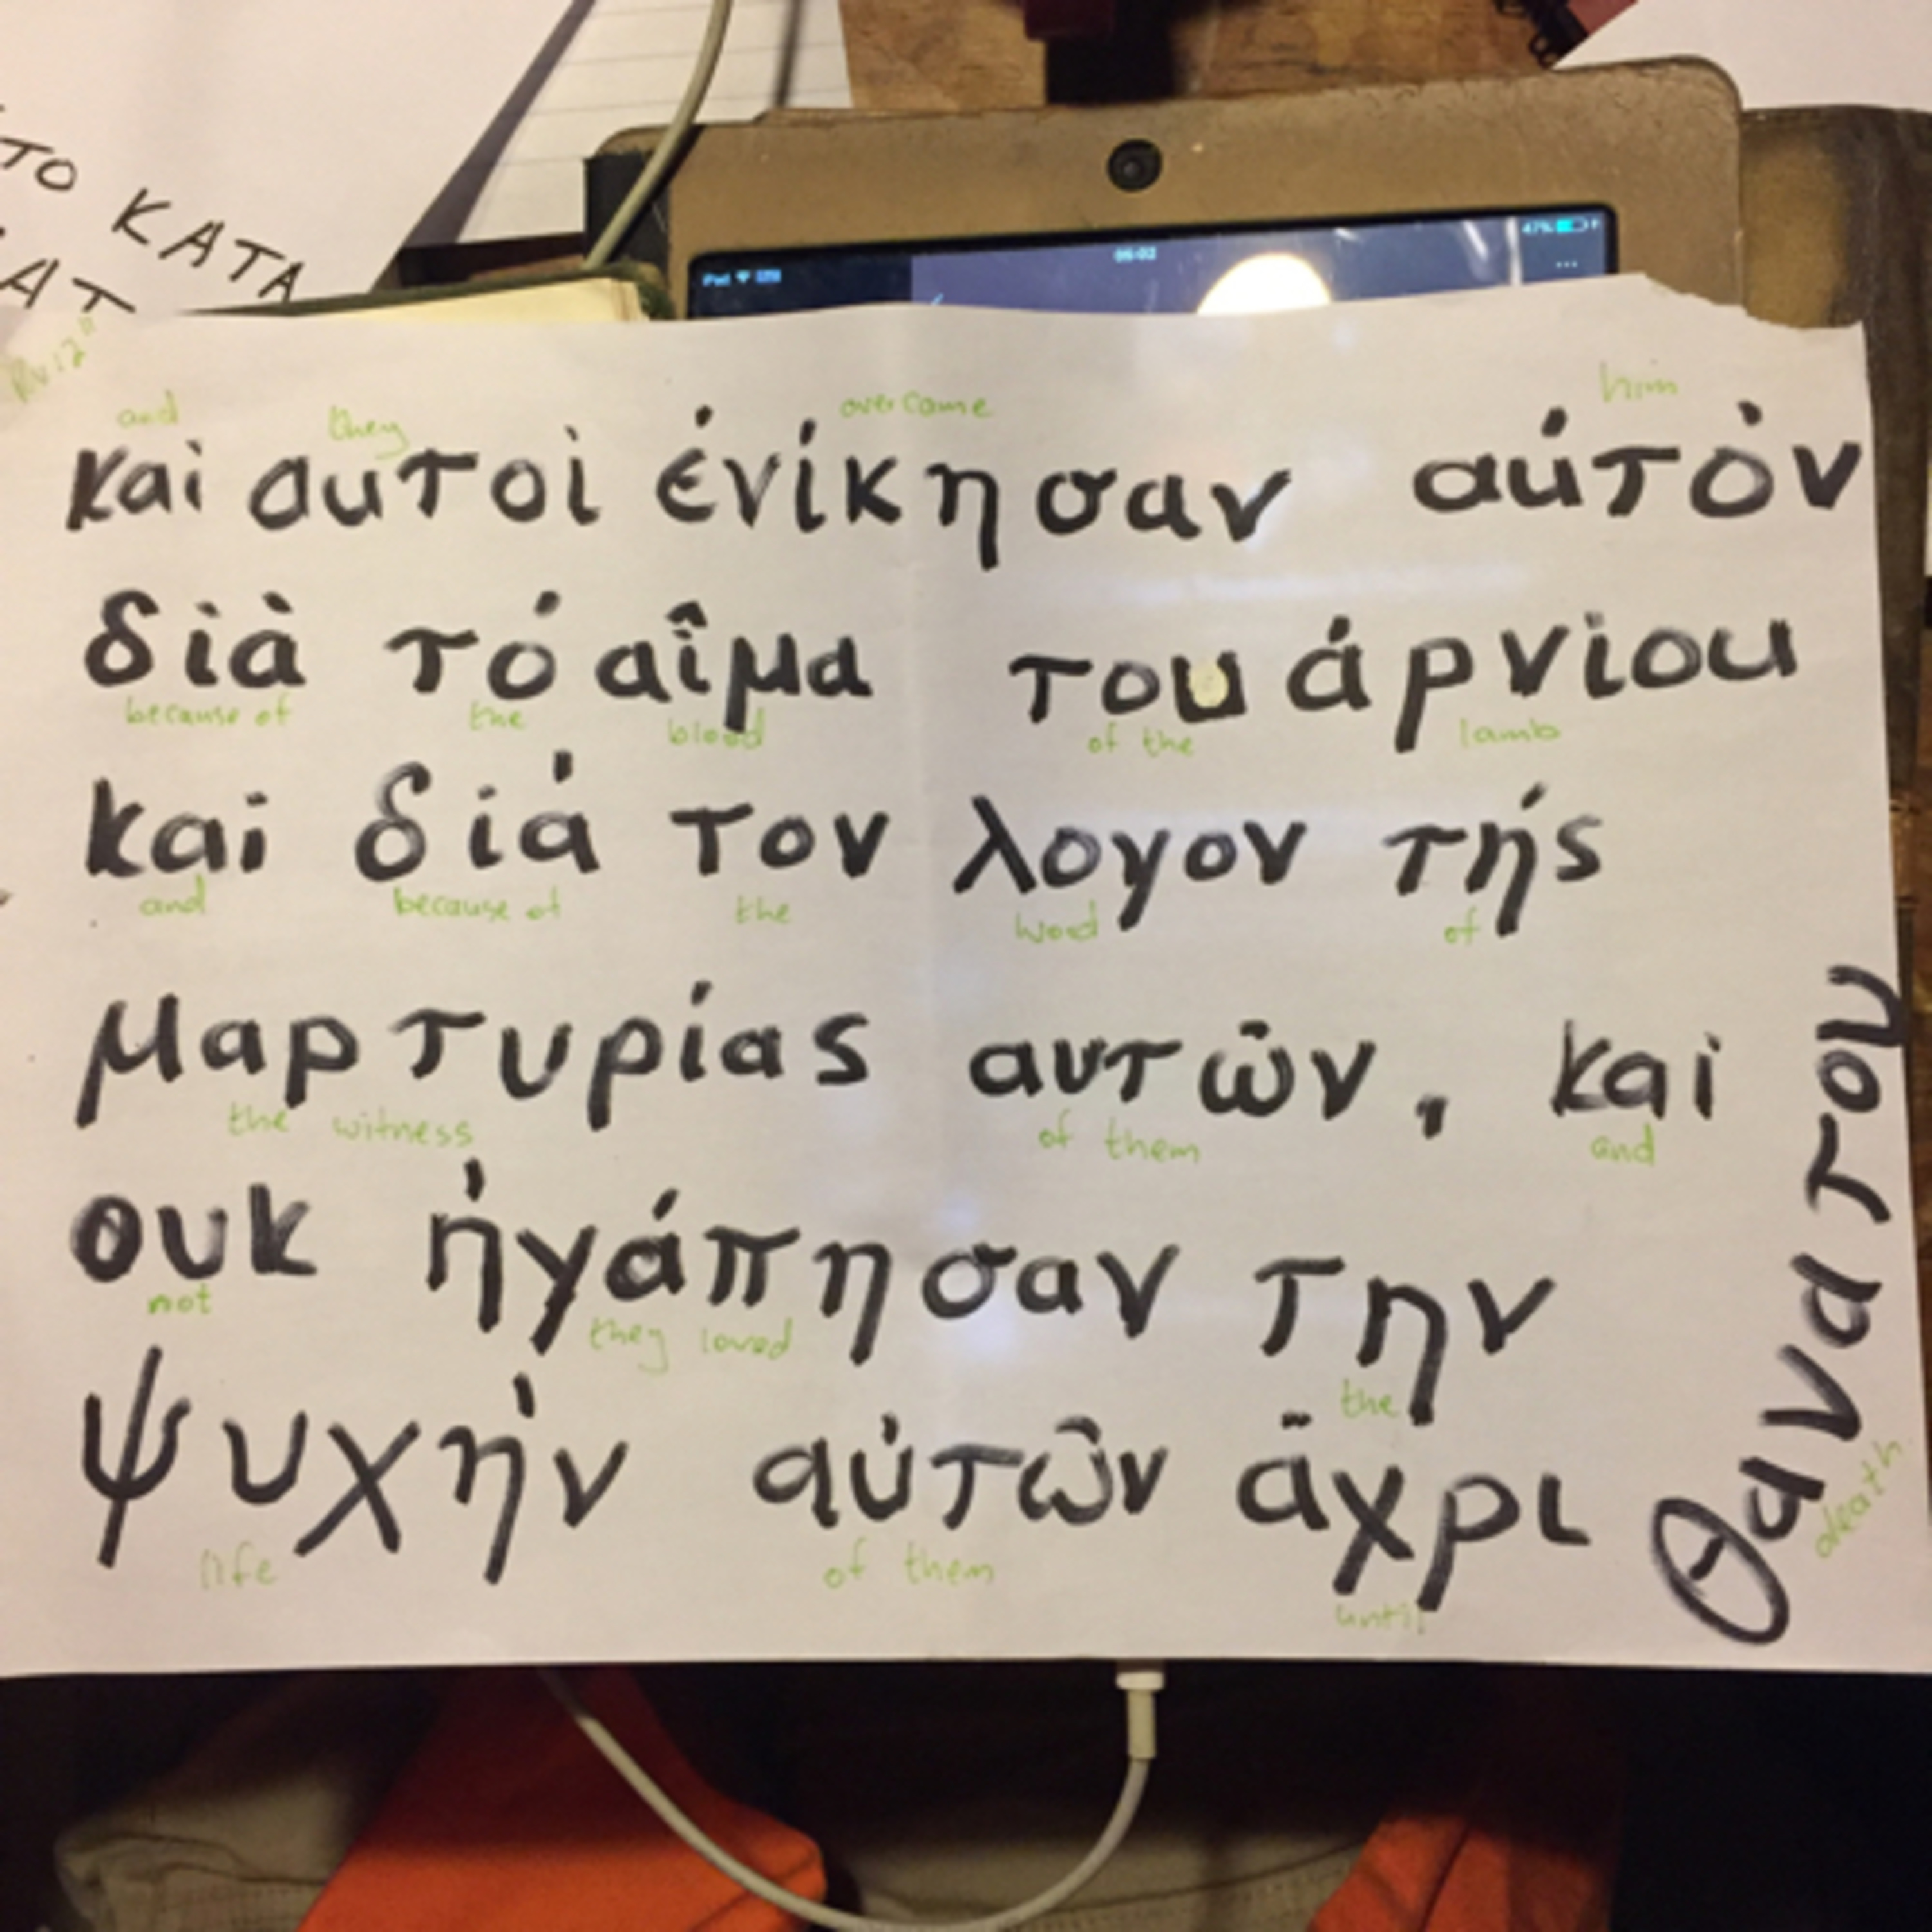 ΤΟ ΚΑΤΑ
ΑΤ
Rv 12"
and they overcame him
καὶ αυτοὶ ἐνίκησαν αύτὸν
διὰ τό αἷμα του άρνίου
because of the blood of the lamb
και διά τον λογον τής
and because of the word of
μαρτυρίας αυτῶν, και
the witness of them and
ουκ ἠγάπησαν την
not they loved the
ψυχήν αὐτῶν ἄχρι θανατου
life of them until death
iPad
05:02
47%